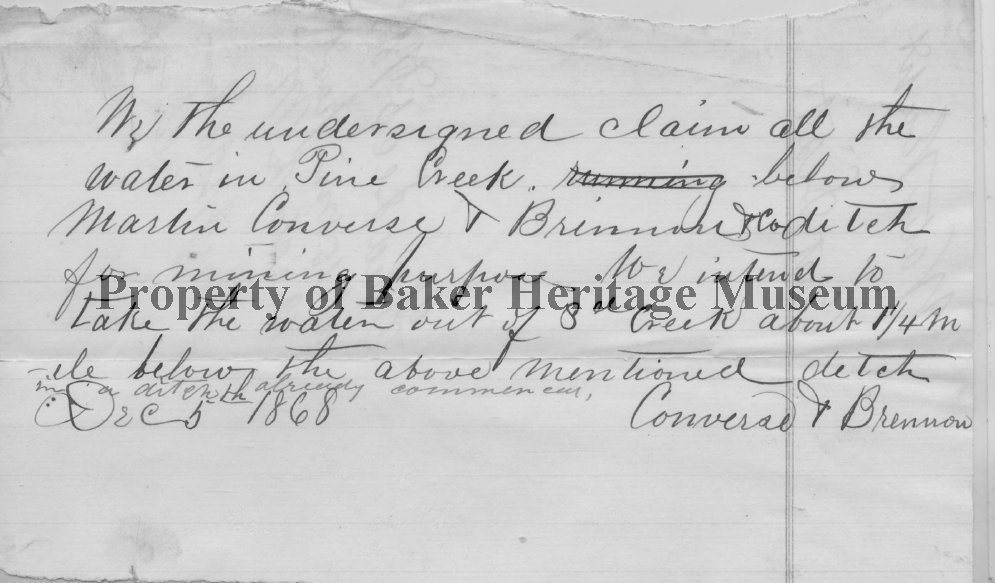 We the undersigned claim all the
water in Pine Creek. running below
Martin Converse & Brinnon & Co ditch
for mining purpose We intend to
Property of Baker Heritage Museum
take the water out of Sd Creek about 1/4 m
ile below the above mentioned detch
in a ditch already commenced,
Dec 5th 1868 Converse & Brennon